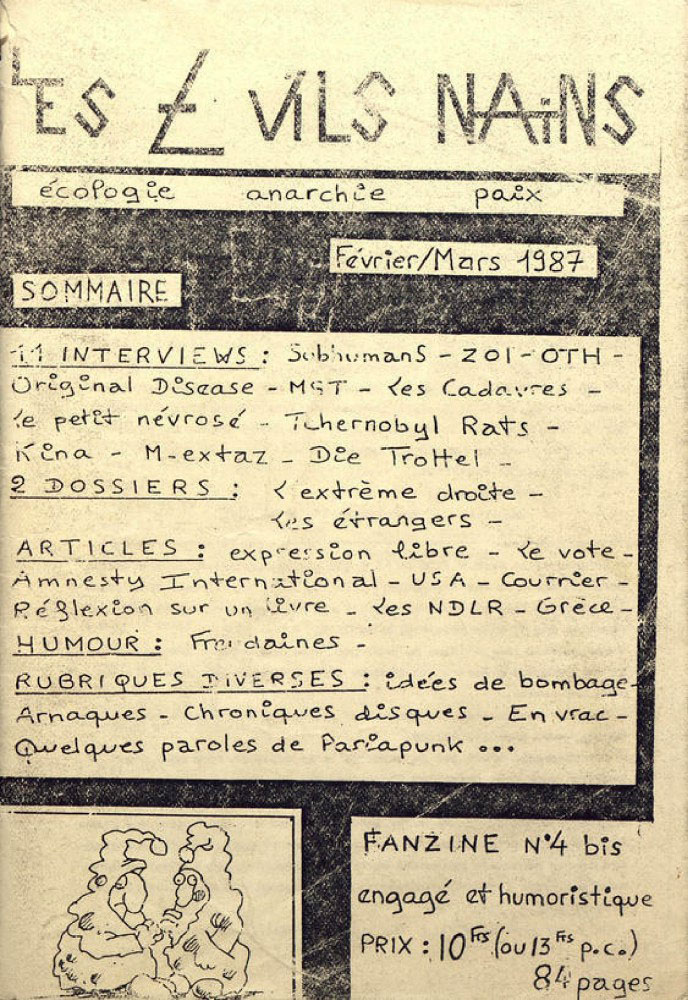 LES EVILS NAiNS
écologie anarchie paix
Février/Mars 1987
SOMMAIRE
11 INTERVIEWS : Subhumans - ZOI - OTH -
Original Disease - MST - Les Cadavres -
le petit névrosé - Tchernobyl Rats -
Kina - M-extaz - Die Trottel -
2 DOSSIERS : L'extrème droite -
Les étrangers -
ARTICLES : expression libre - Le vote -
Amnesty International - USA - Courrier -
Réflexion sur un livre - Les NDLR - Grèce -
HUMOUR : Fredaines -
RUBRIQUES DiVERSES : idées de bombage -
Arnaques - Chroniques disques - En vrac -
Quelques paroles de Pariapunk ...
FANZINE N°4 bis
engagé et humoristique
PRIX : 10 Frs (ou 13 Frs p.c.)
84 pages